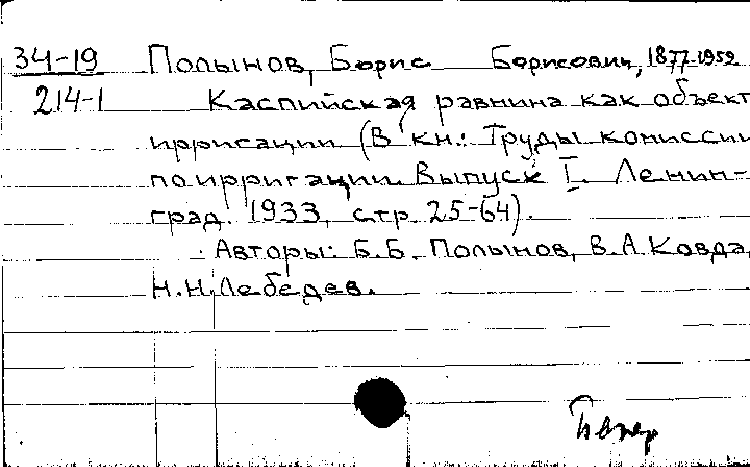 34-19 Полынов, Борис Борисович, 1877-1952.
214-1 Каспийская равнина как объект
ирригации (В кн.: Труды комиссии
по ирригации. Выпуск I. Ленин-
град. 1933, стр. 25-64).
Авторы: Б.Б. Полынов, В.А. Ковда,
Н.Н. Лебедев.